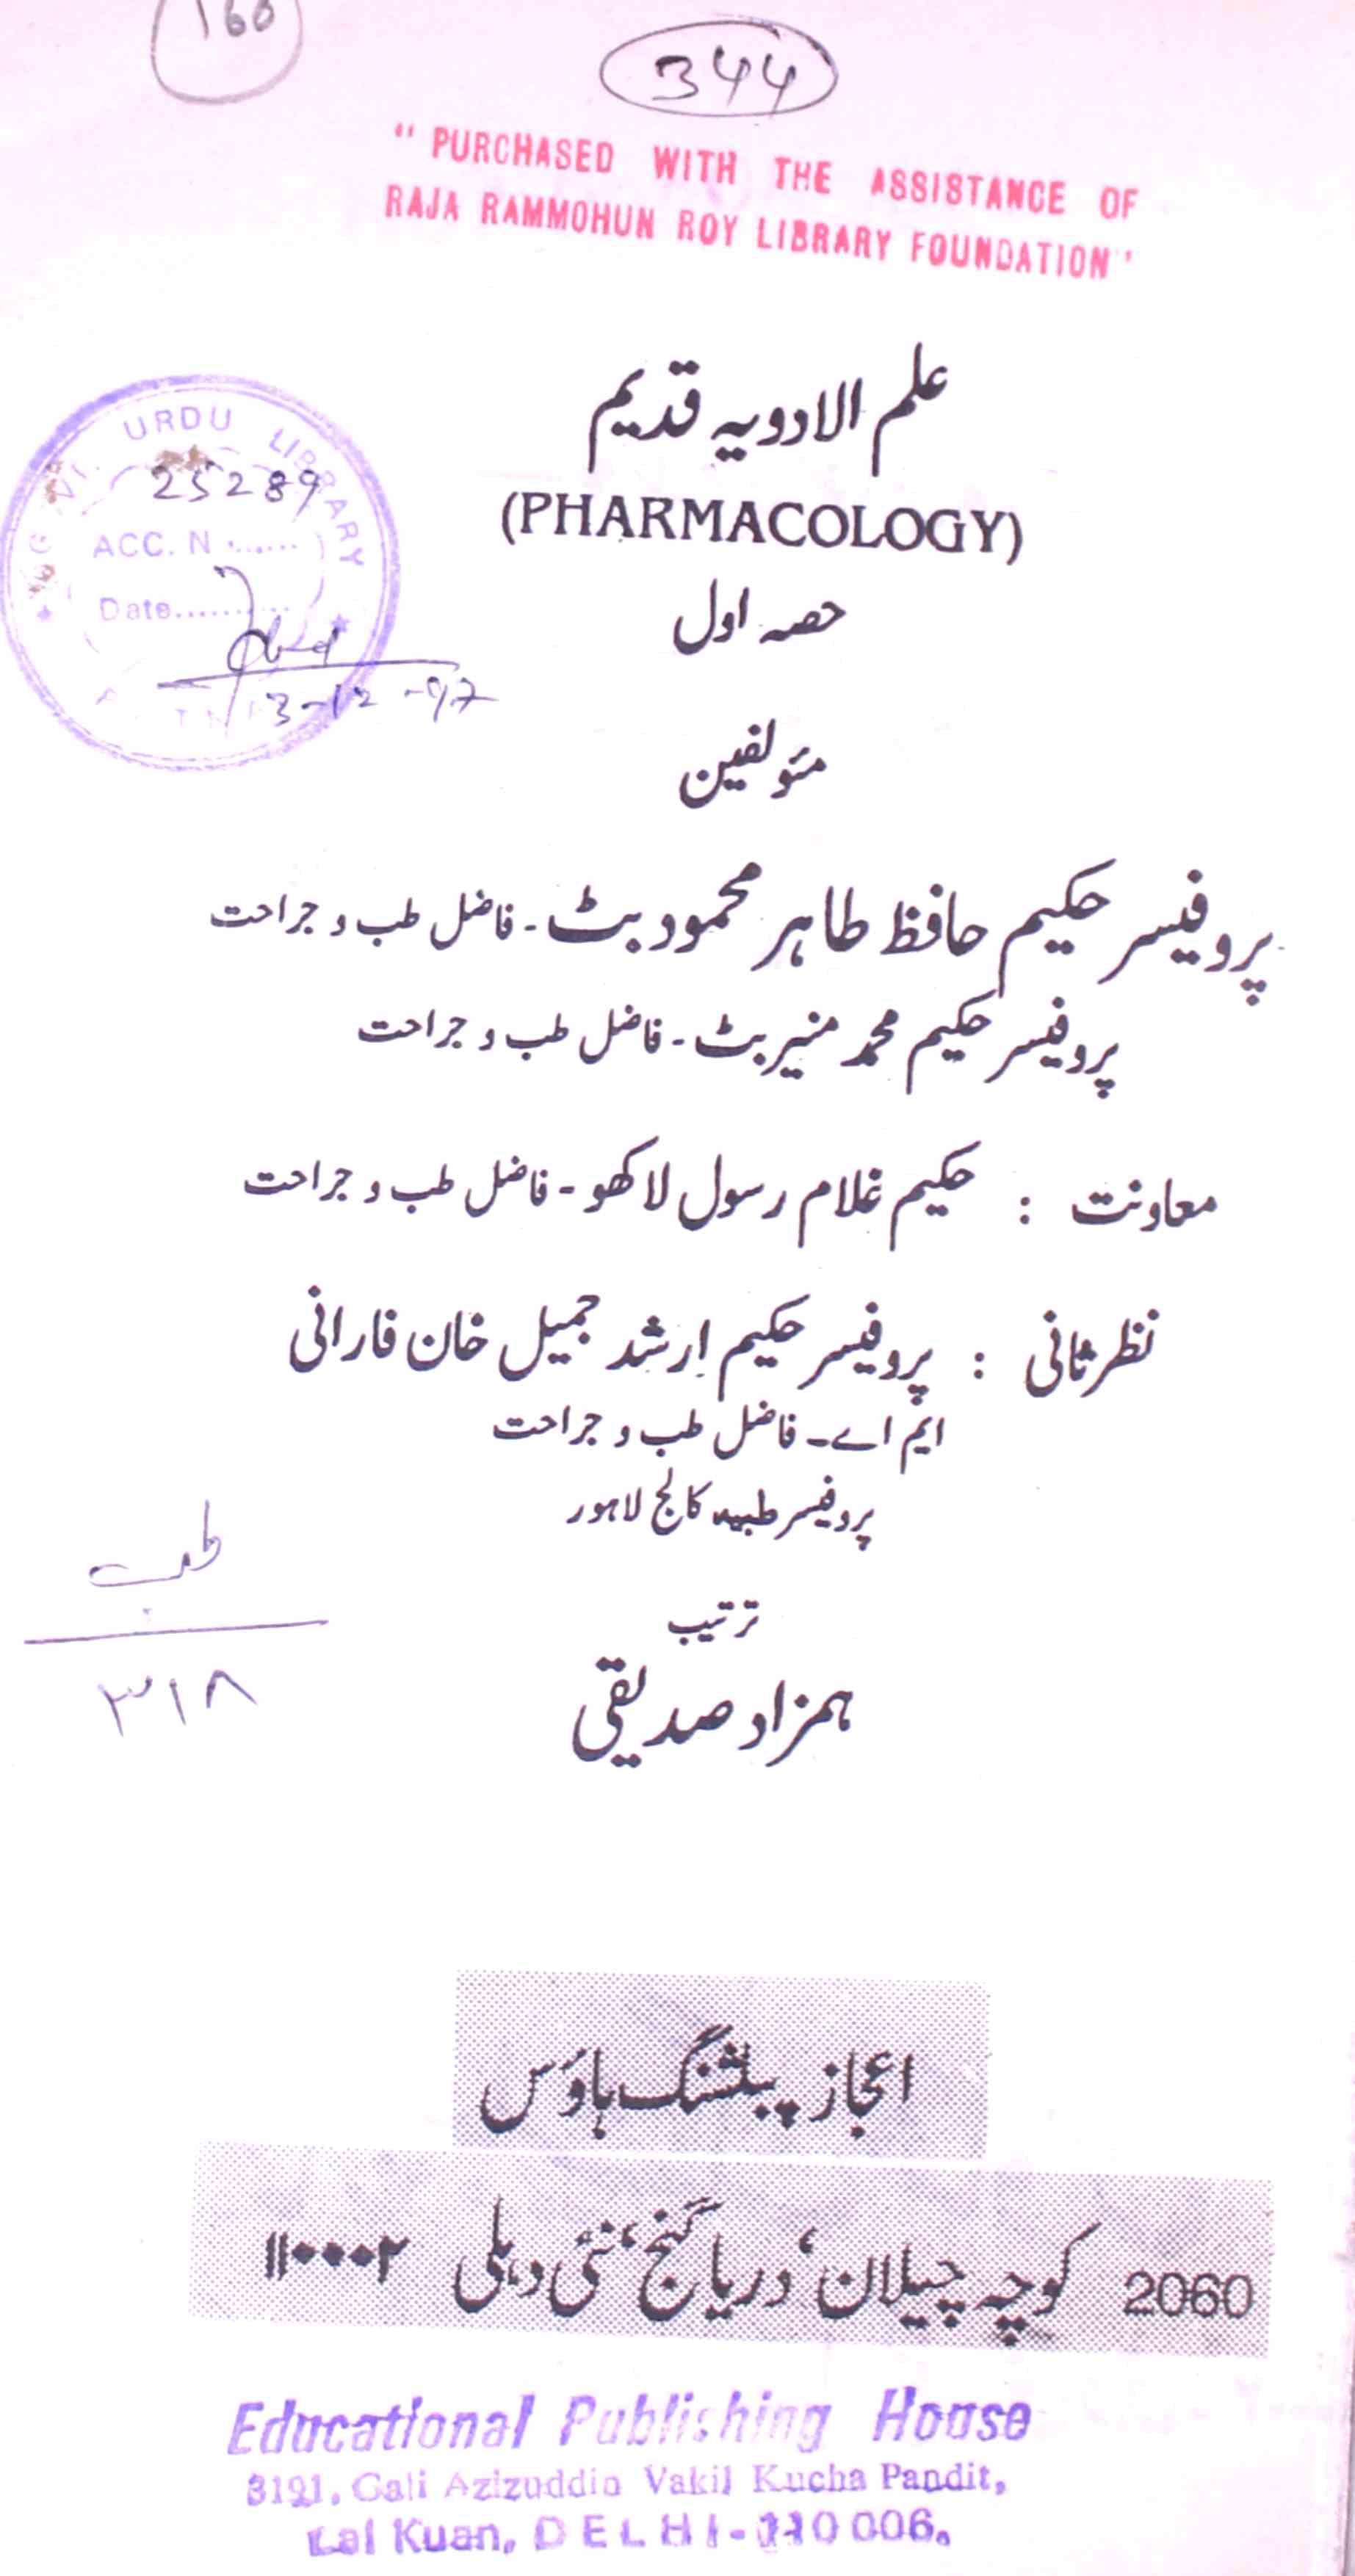 166
344
" PURCHASED WITH THE ASSISTANCE OF
RAJA RAMMOHUN ROY LIBRARY FOUNDATION"
علم الادویہ قدیم
(PHARMACOLOGY)
حصہ اول
URDU LIBRARY
25289
ACC. N.......
Date..........
13-12-97
مئولفین
پروفیسر حکیم حافظ طاہر محمود بٹ ۔ فاضل طب و جراحت
پروفیسر حکیم محمد منیر بٹ ۔ فاضل طب و جراحت
معاونت : حکیم غلام رسول لاکھو ۔ فاضل طب و جراحت
نظر ثانی : پروفیسر حکیم ارشد جمیل خان فارانی
ایم اے ۔ فاضل طب و جراحت
پروفیسر طبیہ کالج لاہور
طب
۳۱۸
ترتیب
ہمزاد صدیقی
اعجاز پبلشنگ ہاؤس
2060 کوچہ چیلان، دریا گنج، نئی دہلی ۱۱۰۰۰۲
Educational Publishing House
3191, Gali Azizuddin Vakil Kucha Pandit,
Lal Kuan, DELHI-110 006.